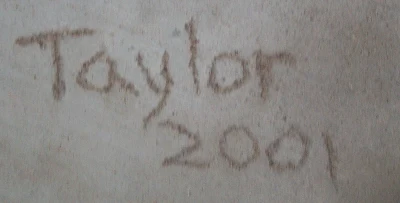 Taylor
2001